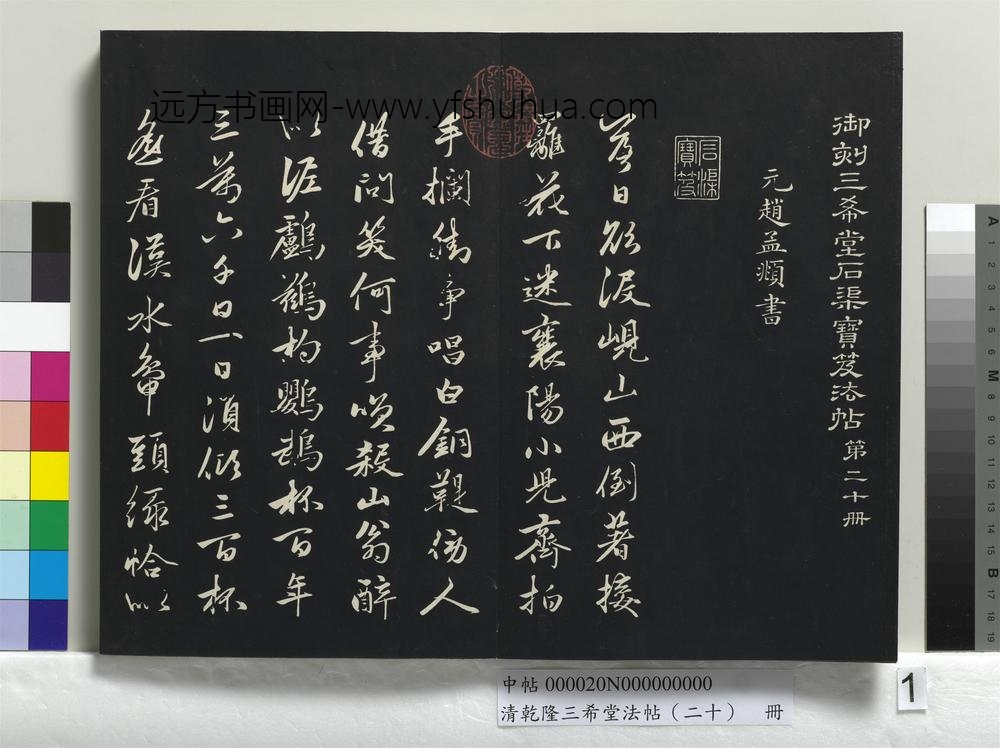 御刻三希堂石渠寶笈法帖 第二十冊
元趙孟頫書
石渠寶笈
落日欲沒峴山西倒著接
離花下迷襄陽小兒齊拍
手攔街爭唱白銅鞮傍人
借問笑何事咲殺山翁醉
似泥鸕鷀杓鸚鵡杯百年
三萬六千日一日須傾三百杯
遙看漢水鴨頭綠恰似
远方书画网-www.yfshuhua.com
中帖 000020N000000000
清乾隆三希堂法帖（二十） 冊
1
A
1
2
3
4
5
6
M
8
9
10
11
12
13
14
15
B
17
18
19